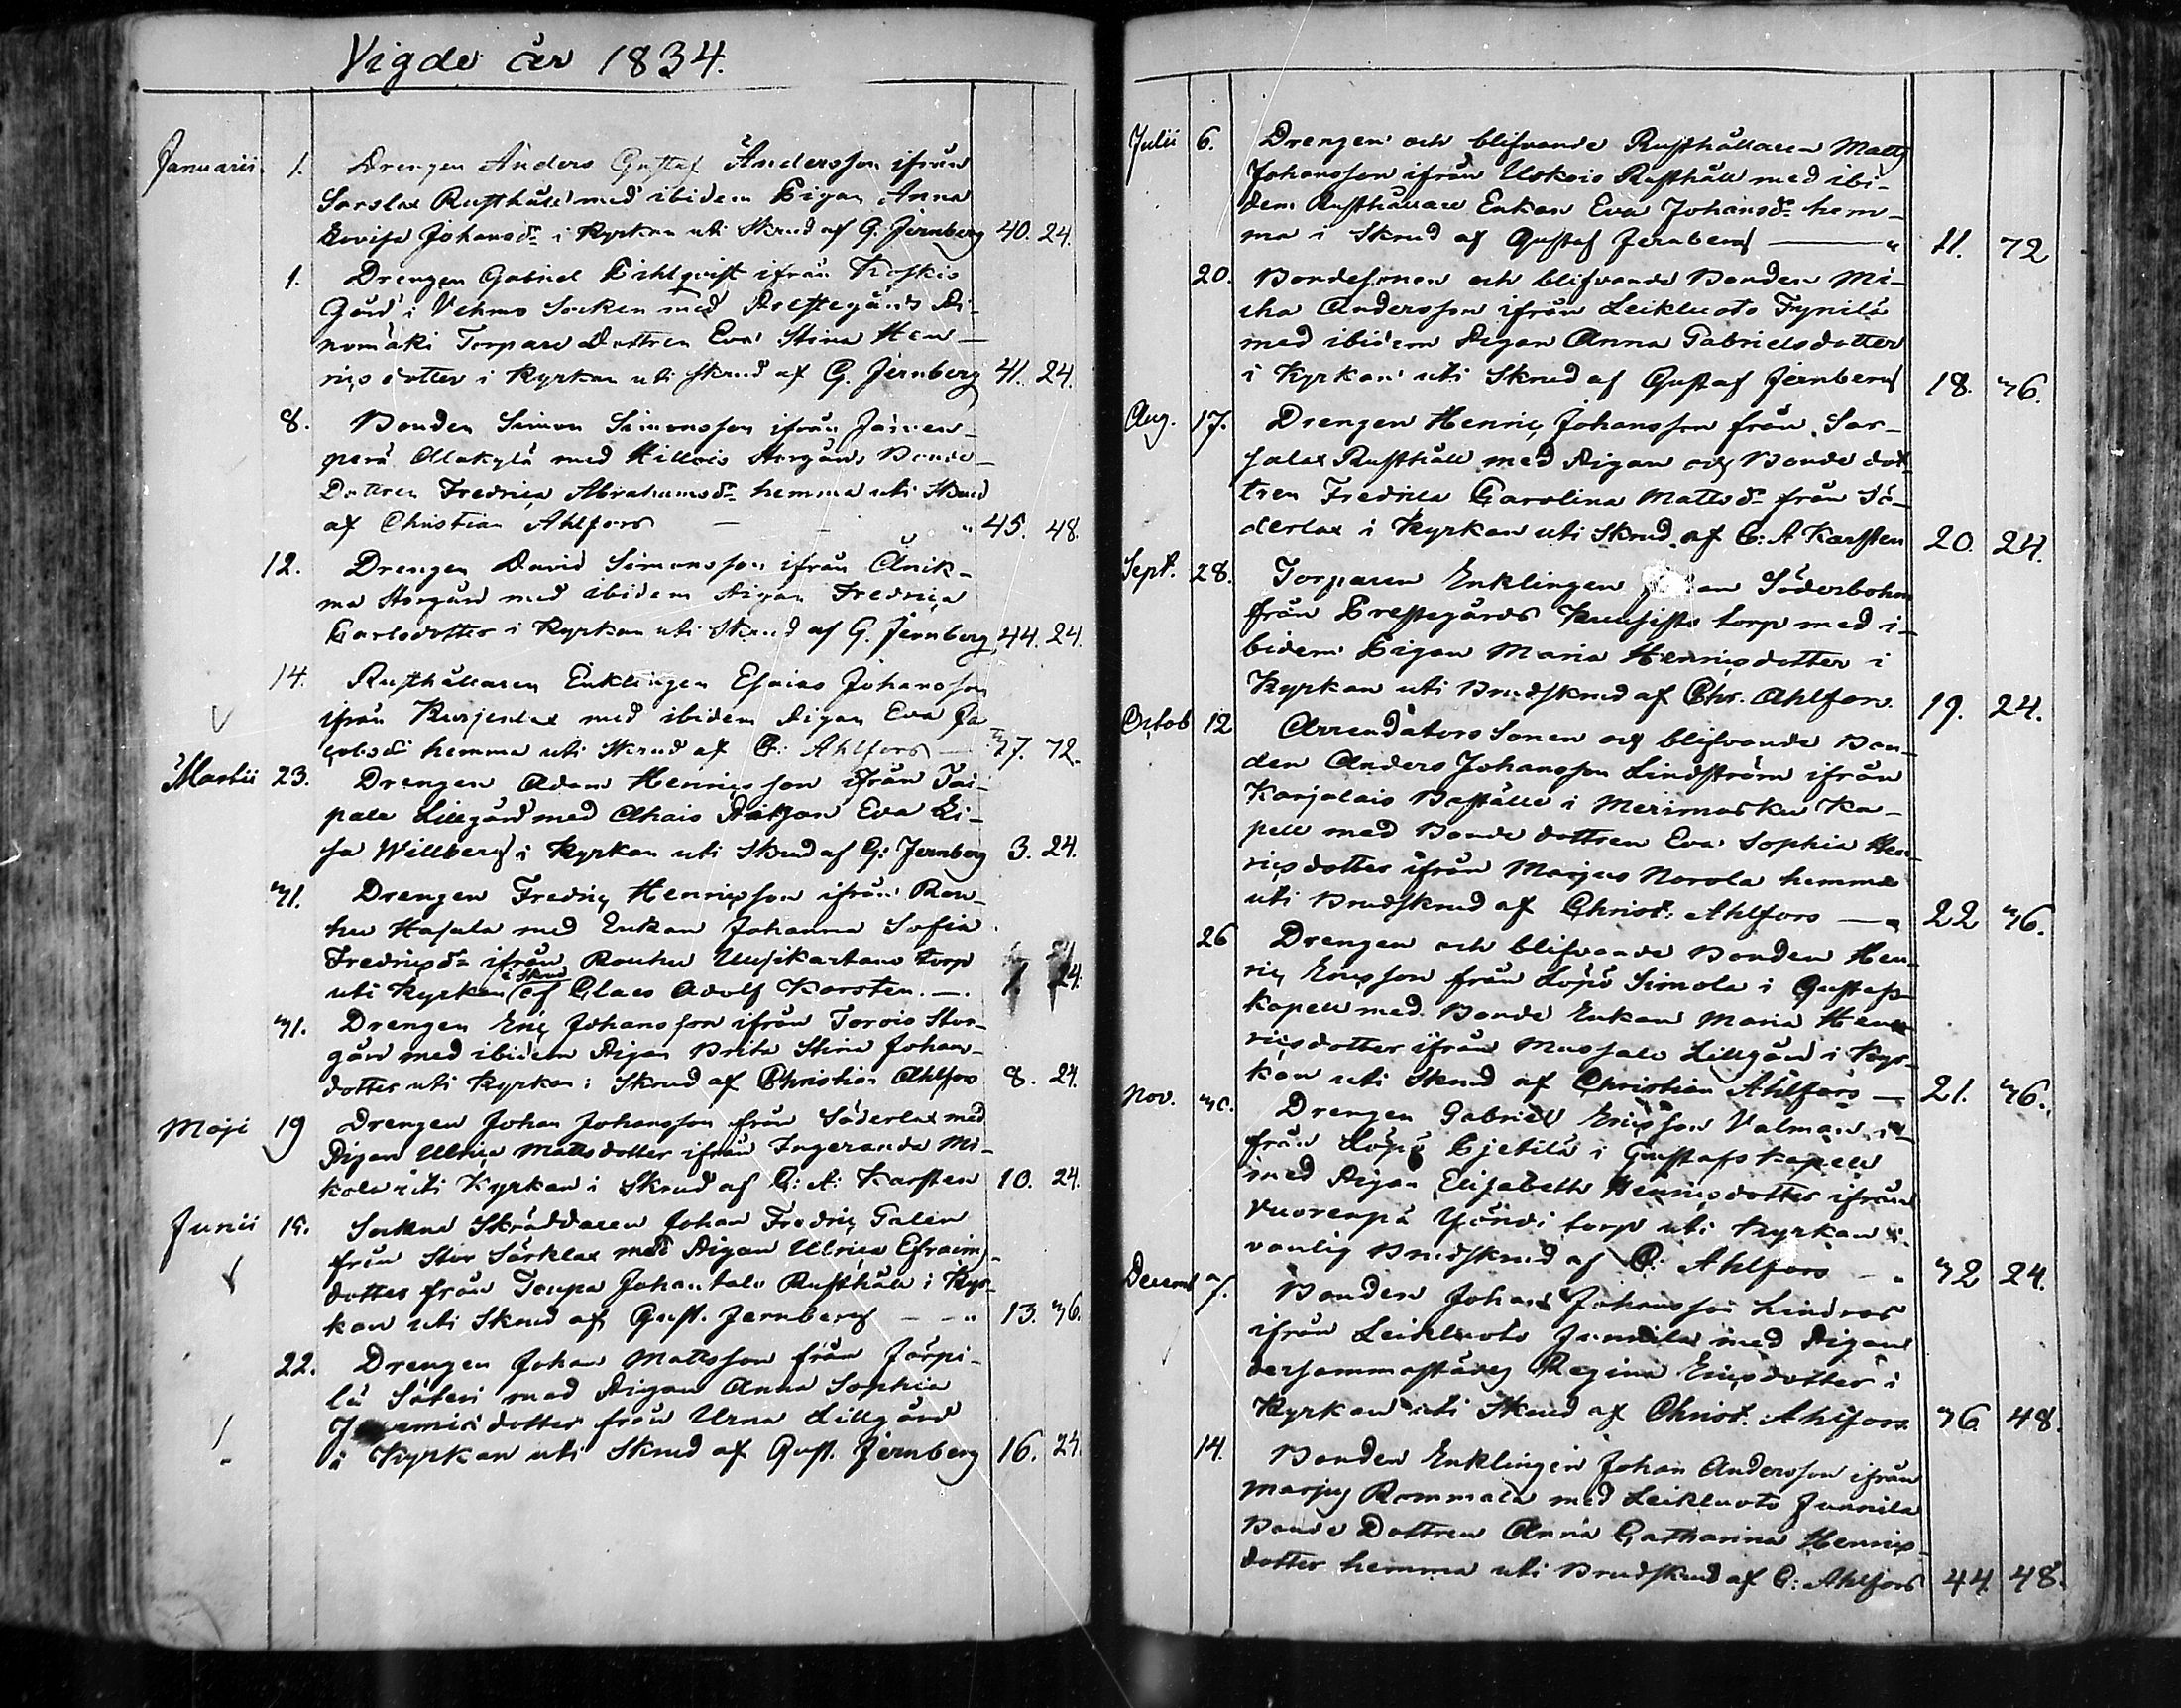 Vigde år 1834.
Januarii 1. Drengen Anders Gustaf Andersson ifrån
Sarslax Rusthåll med ibidem Pigan Anna
Lovisa Johansdr i Kyrkan uti Skrud af G. Jernberg 40. 24.
1. Drengen Gabriel Pihlqvist ifrån Koskis
Gård i Vehmo Socken med Prestegårds
nomäki Torpare Dottren Eva Stina Hen-
ricsdotter i Kyrkan uti skrud af G. Jernberg 41. 24.
8. Bonden Simon Simonsson ifrån Järven-
perä Alakylä med Killais Storgårds Bonde-
Dottren Fredrica Abrahamsdr hemma uti Skrud
af Christian Ahlfors — — " 45. 48.
12. Drengen David Simonsson ifrån Änik-
ma Storgård med ibidem Pigan Fredrica
Carlsdotter i Kyrkan uti Skrud af G. Jernberg 44. 24.
14. Rusthållaren Enklingen Esaias Johansson
ifrån Kurjenlax med ibidem Pigan Eva Ja-
cobsdr hemma uti Skrud af C: Ahlfors — 37. 72.
Martii 23. Drengen Adam Henricsson ifrån Tai-
pale Lillgård med Ahais Pigan Eva Li-
sa Willberg i Kyrkan uti Skrud af G: Jernberg 3. 24.
31. Drengen Fredric Henricsson ifrån Rau-
hu Hasala med Enkan Johanna Sofia
Fredricsdr ifrån Rauhu Uusikartano torp
i Skrud
uti Kyrkan af Claes Adolf Karsten. — 1. 24.
31. Drengen Eric Johansson ifrån Torois Stor-
gård med ibidem Pigan Brita Stina Johans-
dotter uti Kyrkan i Skrud af Christian Ahlfors 8. 24.
Maji 19 Drengen Johan Johansson från Söderlax med
Pigan Ulrica Mattsdotter ifrån Ingeranda Mi-
kola uti Kyrkan i Skrud af C: A: Karsten 10. 24.
Junii 15. Sockne Skräddaren Johan Fredric Galen
från Stor Särklax med Pigan Ulrica Efraims-
dotter från Tenpa Johantalo Rusthåll i Kyr-
kan uti Skrud af Gust. Jernberg — — " 13. 36.
22. Drengen Johan Mattsson från Järpi-
lä Säteri med Pigan Anna Sophia
Jeremiædotter från Urna Lillgård
i Kyrkan uti Skrud af Gust. Jernberg 16. 24.
Julii 6. Drengen och blifvande Rusthållaren Matts
Johansson ifrån Uskois Rusthåll med ibi-
dem Rusthållare Enkan Eva Johansdr hem-
ma i Skrud af Gustaf Jernberg — " 11. 72
20. Bondesonen och blifvande Bonden Mi-
cha Andersson ifrån Leikluoto Fynilä
med ibidem Pigan Anna Gabrielsdotter
i Kyrkan uti Skrud af Gustaf Jernberg 18. 36.
Aug. 17. Drengen Henric Johansson från Sar-
salax Rusthåll med Pigan och Bonde dot-
tren Fredrica Carolina Mattsdr från Sö-
derlax i Kyrkan uti Skrud af C: A Karsten 20. 24.
Sept. 28. Torparen Enklingen Söderbohm
från Prestegårds torp med i-
bidem Pigan Maria Henricsdotter i
Kyrkan uti Brudskrud af Chr. Ahlfors. 19. 24.
Octob 12 Arrendators Sonen och blifvande Bon-
den Anders Johansson Lindström ifrån
Karjalais Boställe i Merimasku Ka-
pell med Bonde dottren Eva Sophia Hen-
ricsdotter ifrån Marjus Norola hemma
uti Brudskrud af Christ. Ahlfors — " 22 36.
26 Drengen och blifvande Bonden Hen-
ric Ericsson från Löpö Simola i Gustafs
Kapell med Bonde Enkan Maria Hen-
ricsdotter ifrån Mussalo Lillgård i Kyr-
kan uti Skrud af Christian Ahlfors — 21. 36.
Nov. 30. Drengen Gabriel Ericsson Valman i-
från Löpö Cjetilä i Gustafs Kapell
med Pigan Elisabeth Henricsdotter ifrån
Vuorenpä Yöndi torp uti Kyrkan i
vanlig Brudskrud af C: Ahlfors — " 32 24.
Decemb 7. Bonden Johan Johansson Lindros
ifrån Leikluoto Junnila med Pigan
dersammastädes Regina Ericsdotter i
Kyrkan uti Skrud af Christ. Ahlfors. 36. 48.
14. Bonden Enklingen Johan Andersson ifrån
Marjus Rammala med Leikluoto Junnila
Bonde Dottren Anna Catharina Henrics-
dotter hemma uti Brudskrud af C: Ahlfors 44. 48.